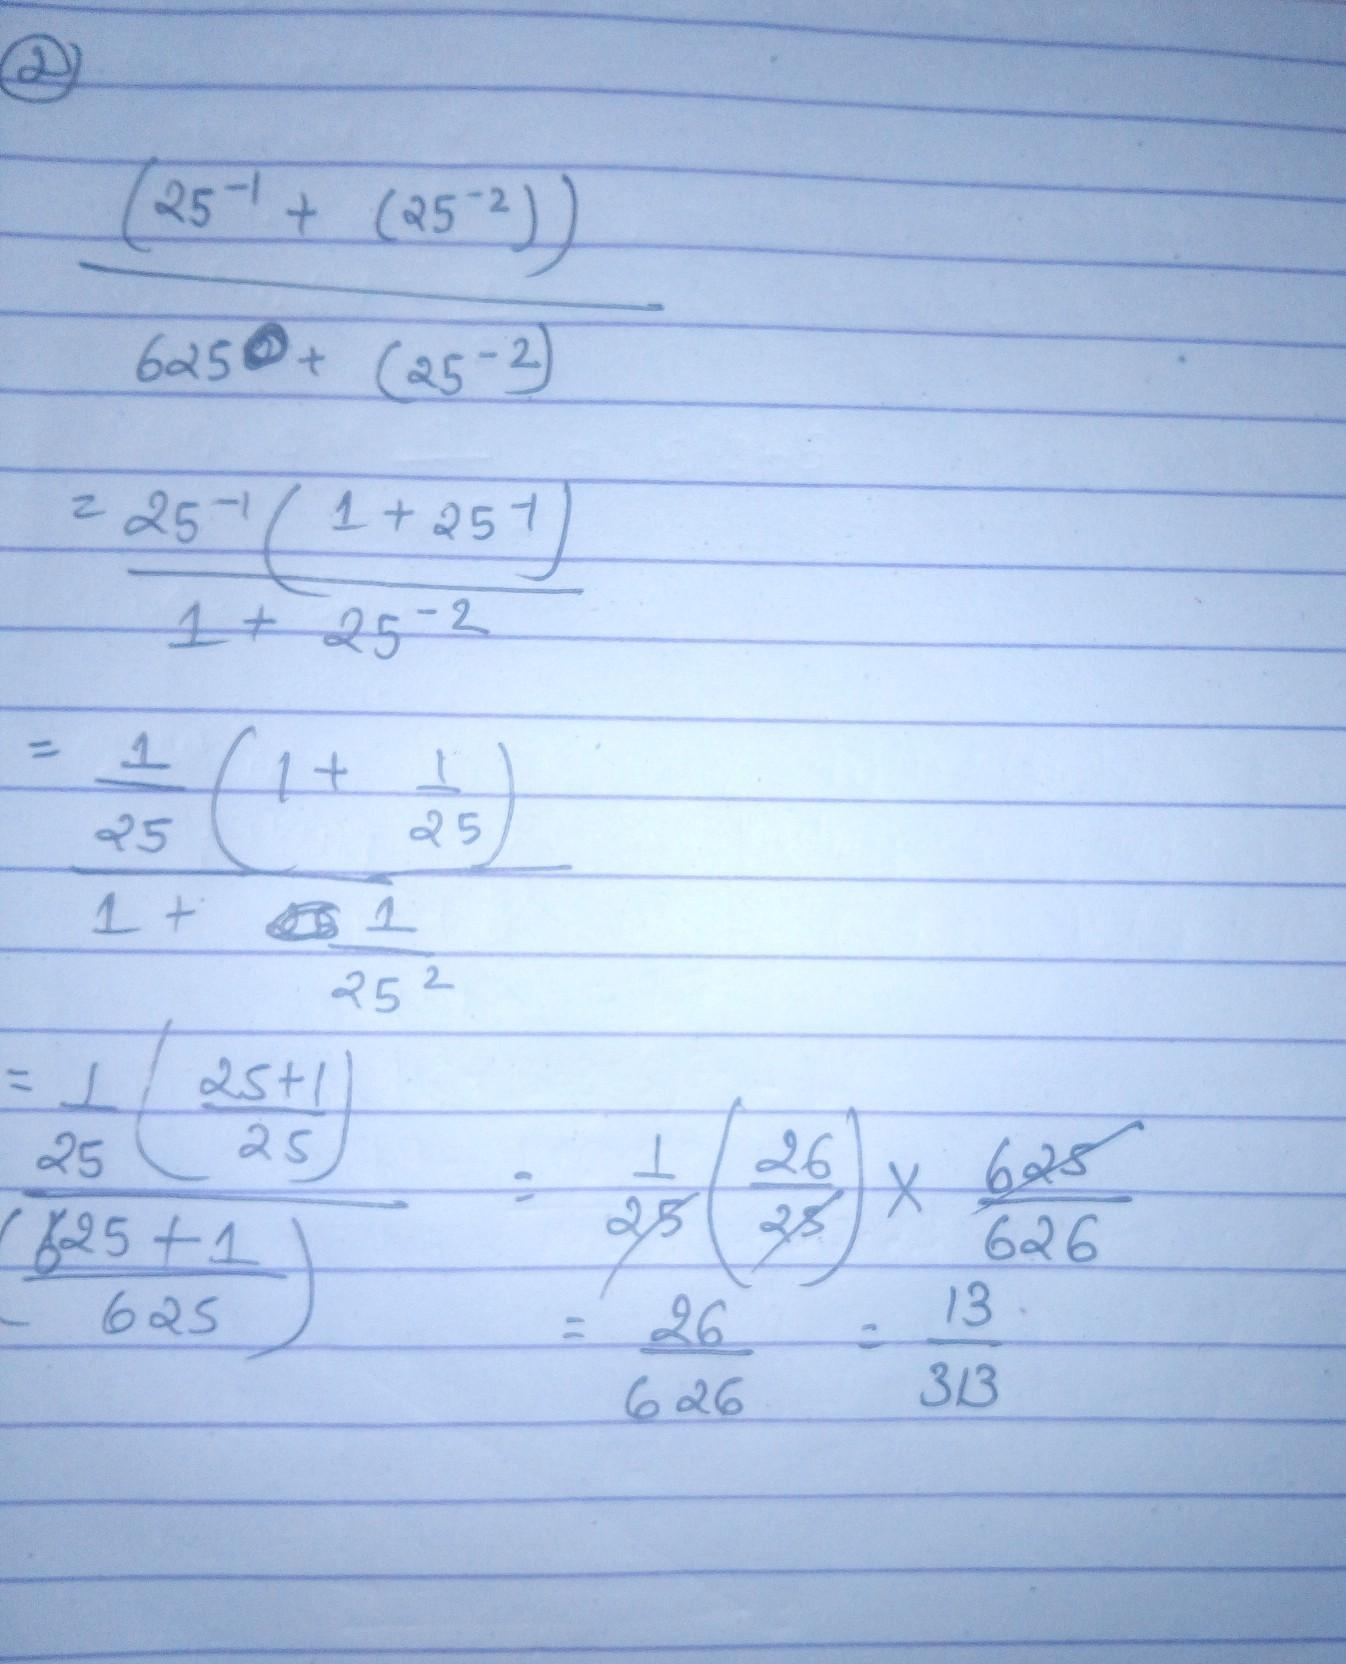 2)
(25⁻¹ + (25⁻²))
625⁰ + (25⁻²)
= 25⁻¹ ( 1 + 25⁻¹)
1 + 25⁻²
= 1/25 ( 1 + 1/25 )
1 + 1/25²
= 1/25 ( 25+1/25 )
( 625 + 1/625 )
= 1/25 ( 26/25 ) × 625/626
= 26/626 = 13/313